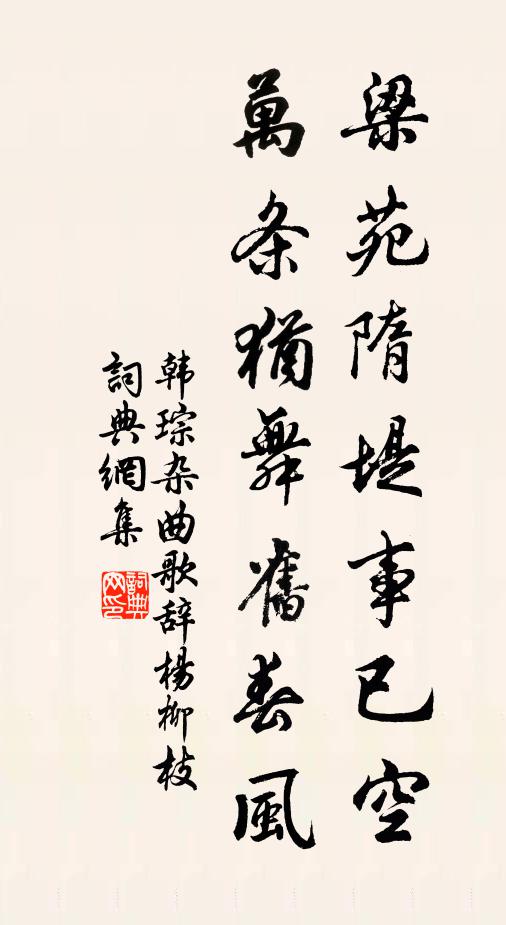 梁苑隋堤事已空
萬条猶舞舊春風
韩琮杂曲歌辞楊柳枝
詞典網集
詞典网印